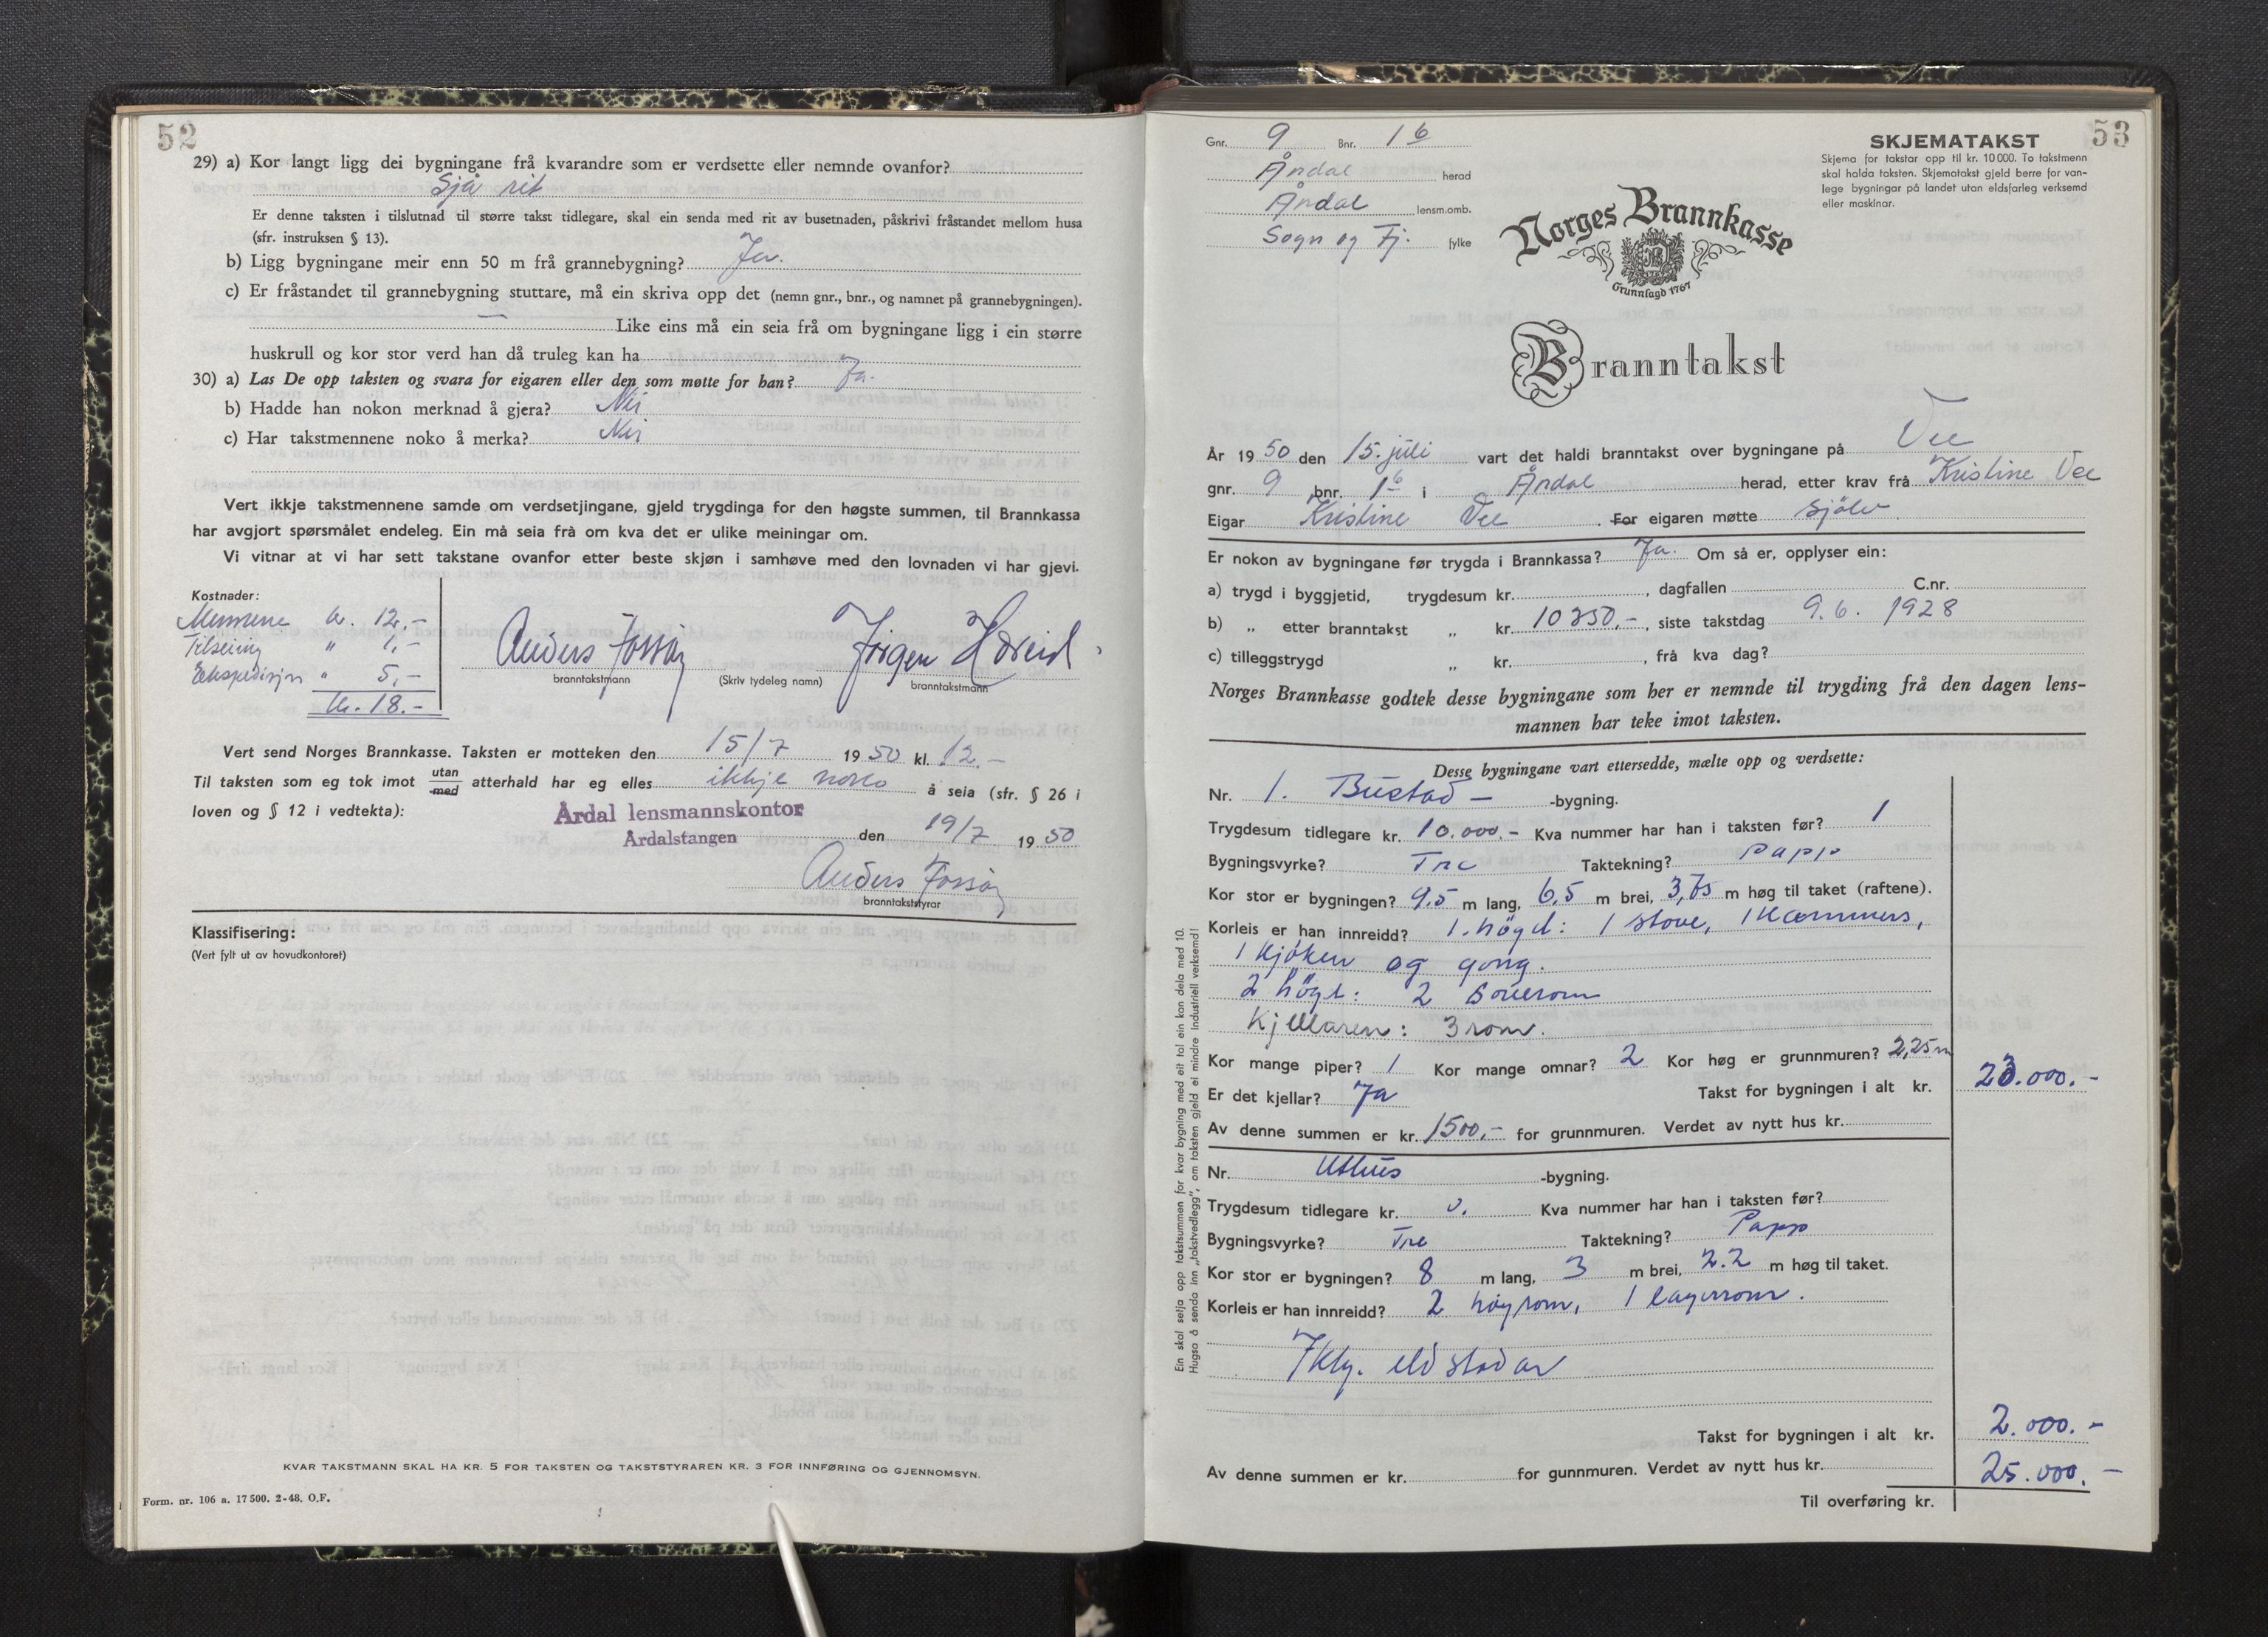 52
29) a) Kor langt ligg dei bygningane frå kvarandre som er verdsette eller nemnde ovanfor?
Sjå rit
Er denne taksten i tilslutnad til større takst tidlegare, skal ein senda med rit av busetnaden, påskrivi fråstandet mellom husa
(sfr. instruksen § 13).
b) Ligg bygningane meir enn 50 m frå grannebygning? Ja.
c) Er fråstandet til grannebygning stuttare, må ein skriva opp det (nemn gnr., bnr., og namnet på grannebygningen).
— Like eins må ein seia frå om bygningane ligg i ein større
huskrull og kor stor verd han då truleg kan ha
30) a) Las De opp taksten og svara for eigaren eller den som møtte for han? Ja.
b) Hadde han nokon merknad å gjera? Nei
c) Har takstmennene noko å merka? Nei
Vert ikkje takstmennene samde om verdsetjingane, gjeld trygdinga for den høgste summen, til Brannkassa
har avgjort spørsmålet endeleg. Ein må seia frå om kva det er ulike meiningar om.
Vi vitnar at vi har sett takstane ovanfor etter beste skjøn i samhøve med den lovnaden vi har gjevi.
Kostnader:
Mennene kr. 12,-
Tilseiing " 1,-
Ekspedisjon " 5,-
kr. 18.-
Anders Jørgen
branntakstmann (Skriv tydeleg namn) branntakstmann
Vert send Norges Brannkasse. Taksten er motteken den 15/7 1950 kl. 12.-
Til taksten som eg tok imot utan/med atterhald har eg elles ikkje noko å seia (sfr. § 26 i
loven og § 12 i vedtekta):
Årdal lensmannskontor
Årdalstangen den 19/7 1950
Anders
branntakststyrar
Klassifisering:
(Vert fylt ut av hovudkontoret)
KVAR TAKSTMANN SKAL HA KR. 5 FOR TAKSTEN OG TAKSTSTYRAREN KR. 3 FOR INNFØRING OG GJENNOMSYN.
Form. nr. 106 a. 17 500. 2-48. O.F.
53
Gnr. 9 Bnr. 16
Årdal herad
Årdal lensm.omb.
Sogn og Fj. fylke
SKJEMATAKST
Skjema for takstar opp til kr. 10 000. To takstmenn
skal halda taksten. Skjematakst gjeld berre for van-
lege bygningar på landet utan eldsfarleg verksemd
eller maskinar.
Norges Brannkasse
Grunnlagd 1767
Branntakst
År 1950 den 15. juli vart det haldi branntakst over bygningane på Vee
gnr. 9 bnr. 16 i Årdal herad, etter krav frå Kristine Vee
Eigar Kristine Vee. For eigaren møtte sjølv
Er nokon av bygningane før trygda i Brannkassa? Ja. Om så er, opplyser ein:
a) trygd i byggjetid, trygdesum kr. , dagfallen C.nr.
b) „ etter branntakst „ kr. 10350,-, siste takstdag 9.6. 1928
c) tilleggstrygd „ kr. , frå kva dag?
Norges Brannkasse godtek desse bygningane som her er nemnde til trygding frå den dagen lens-
mannen har teke imot taksten.
Desse bygningane vart ettersedde, mælte opp og verdsette:
Nr. 1. Bustad- -bygning.
Trygdesum tidlegare kr. 10.000.- Kva nummer har han i taksten før? 1
Bygningsvyrke? Tre Taktekning? Papp
Kor stor er bygningen? 9.5 m lang, 6,5 m brei, 3,75 m høg til taket (raftene).
Korleis er han innreidd? 1. högd: 1 stove, 1 kammers,
1 kjøken og gong.
2 högd: 2 soverom
Kjellaren: 3 rom.
Kor mange piper? 1 Kor mange omnar? 2 Kor høg er grunnmuren? 2,25m
Er det kjellar? Ja Takst for bygningen i alt kr. 23.000.-
Av denne summen er kr. 1500,- for grunnmuren. Verdet av nytt hus kr.
Nr. Uthus -bygning.
Trygdesum tidlegare kr. 0. Kva nummer har han i taksten før?
Bygningsvyrke? Tre Taktekning? Papp
Kor stor er bygningen? 8 m lang, 3 m brei, 2.2 m høg til taket.
Korleis er han innreidd? 2 høyrom, 1 lagerrom.
Ikkj. eldstadar
Takst for bygningen i alt kr. 2.000.-
Av denne summen er kr. for gunnmuren. Verdet av nytt hus kr.
25.000.-
Til overføring kr.
Ein skal setja opp takstsummen for kvar bygning med eit tal ein kan dela med 10.
Hugsa å senda inn „takstvedlegg", om taksten gjeld ei mindre industriell verksemd!